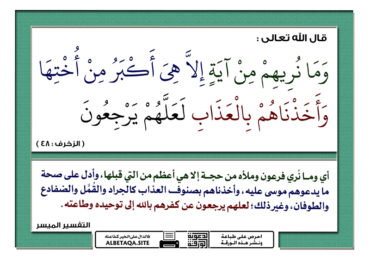 قال الله تعالى :
وَمَا نُرِيهِمْ مِنْ آيَةٍ إِلاَّ هِيَ أَكْبَرُ مِنْ أُخْتِهَا
وَأَخَذْنَاهُمْ بِالْعَذَابِ لَعَلَّهُمْ يَرْجِعُونَ
( الزخرف : ٤٨ )
أي وما نُري فرعون وملأه من حجة إلا هي أعظم من التي قبلها، وأدل على صحة
ما يدعوهم موسى عليه ، وأخذناهم بصنوف العذاب كالجراد والقُمَّل والضفادع
والطوفان، وغير ذلك؛ لعلهم يرجعون عن كفرهم بالله إلى توحيده وطاعته .
التفسير الميسر
احرص على طباعة
ونشر هذه الورقة
ALBETAQA.SITE